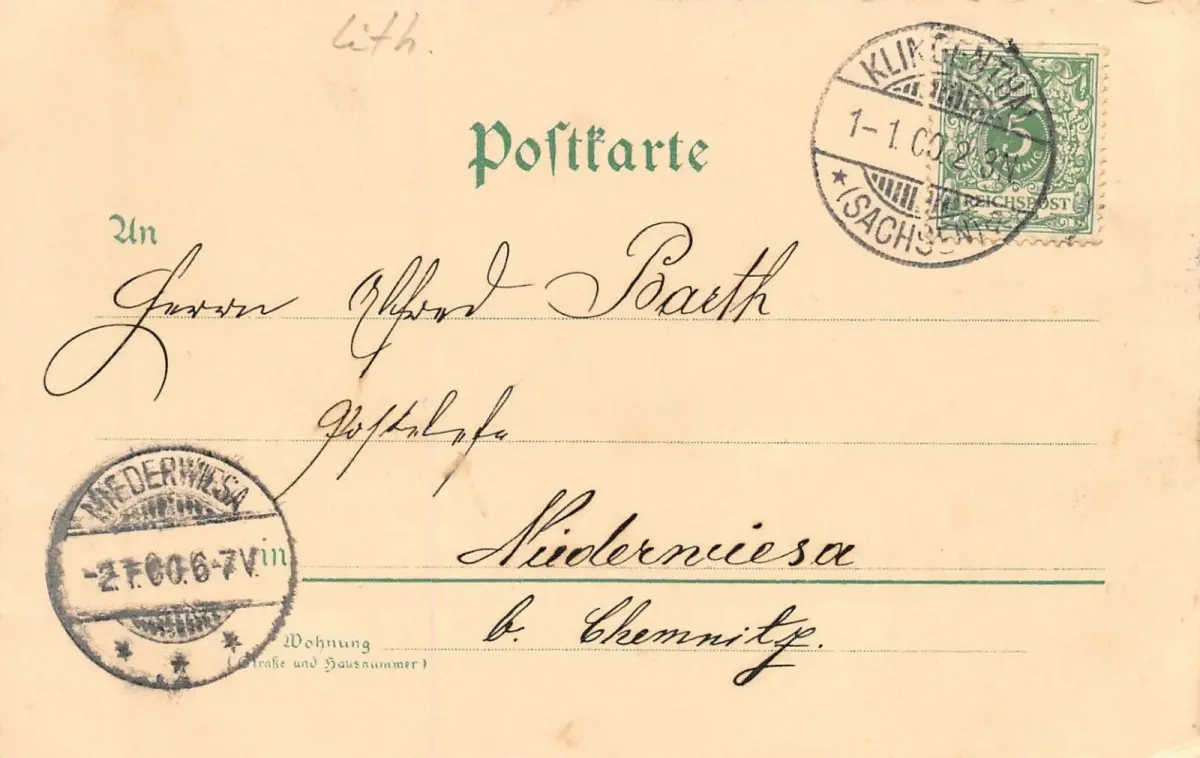 Lith.
Postkarte
KLINGENTHAL
1-1.00.2-3N.
* (SACHSEN) *
5
PFENNIG
REICHSPOST
An
Herrn Alfred Barth
NIEDERWIESA
-2.1.00.6-7V.
in Niederwiesa
b. Chemnitz.
Wohnung
(Straße und Hausnummer)